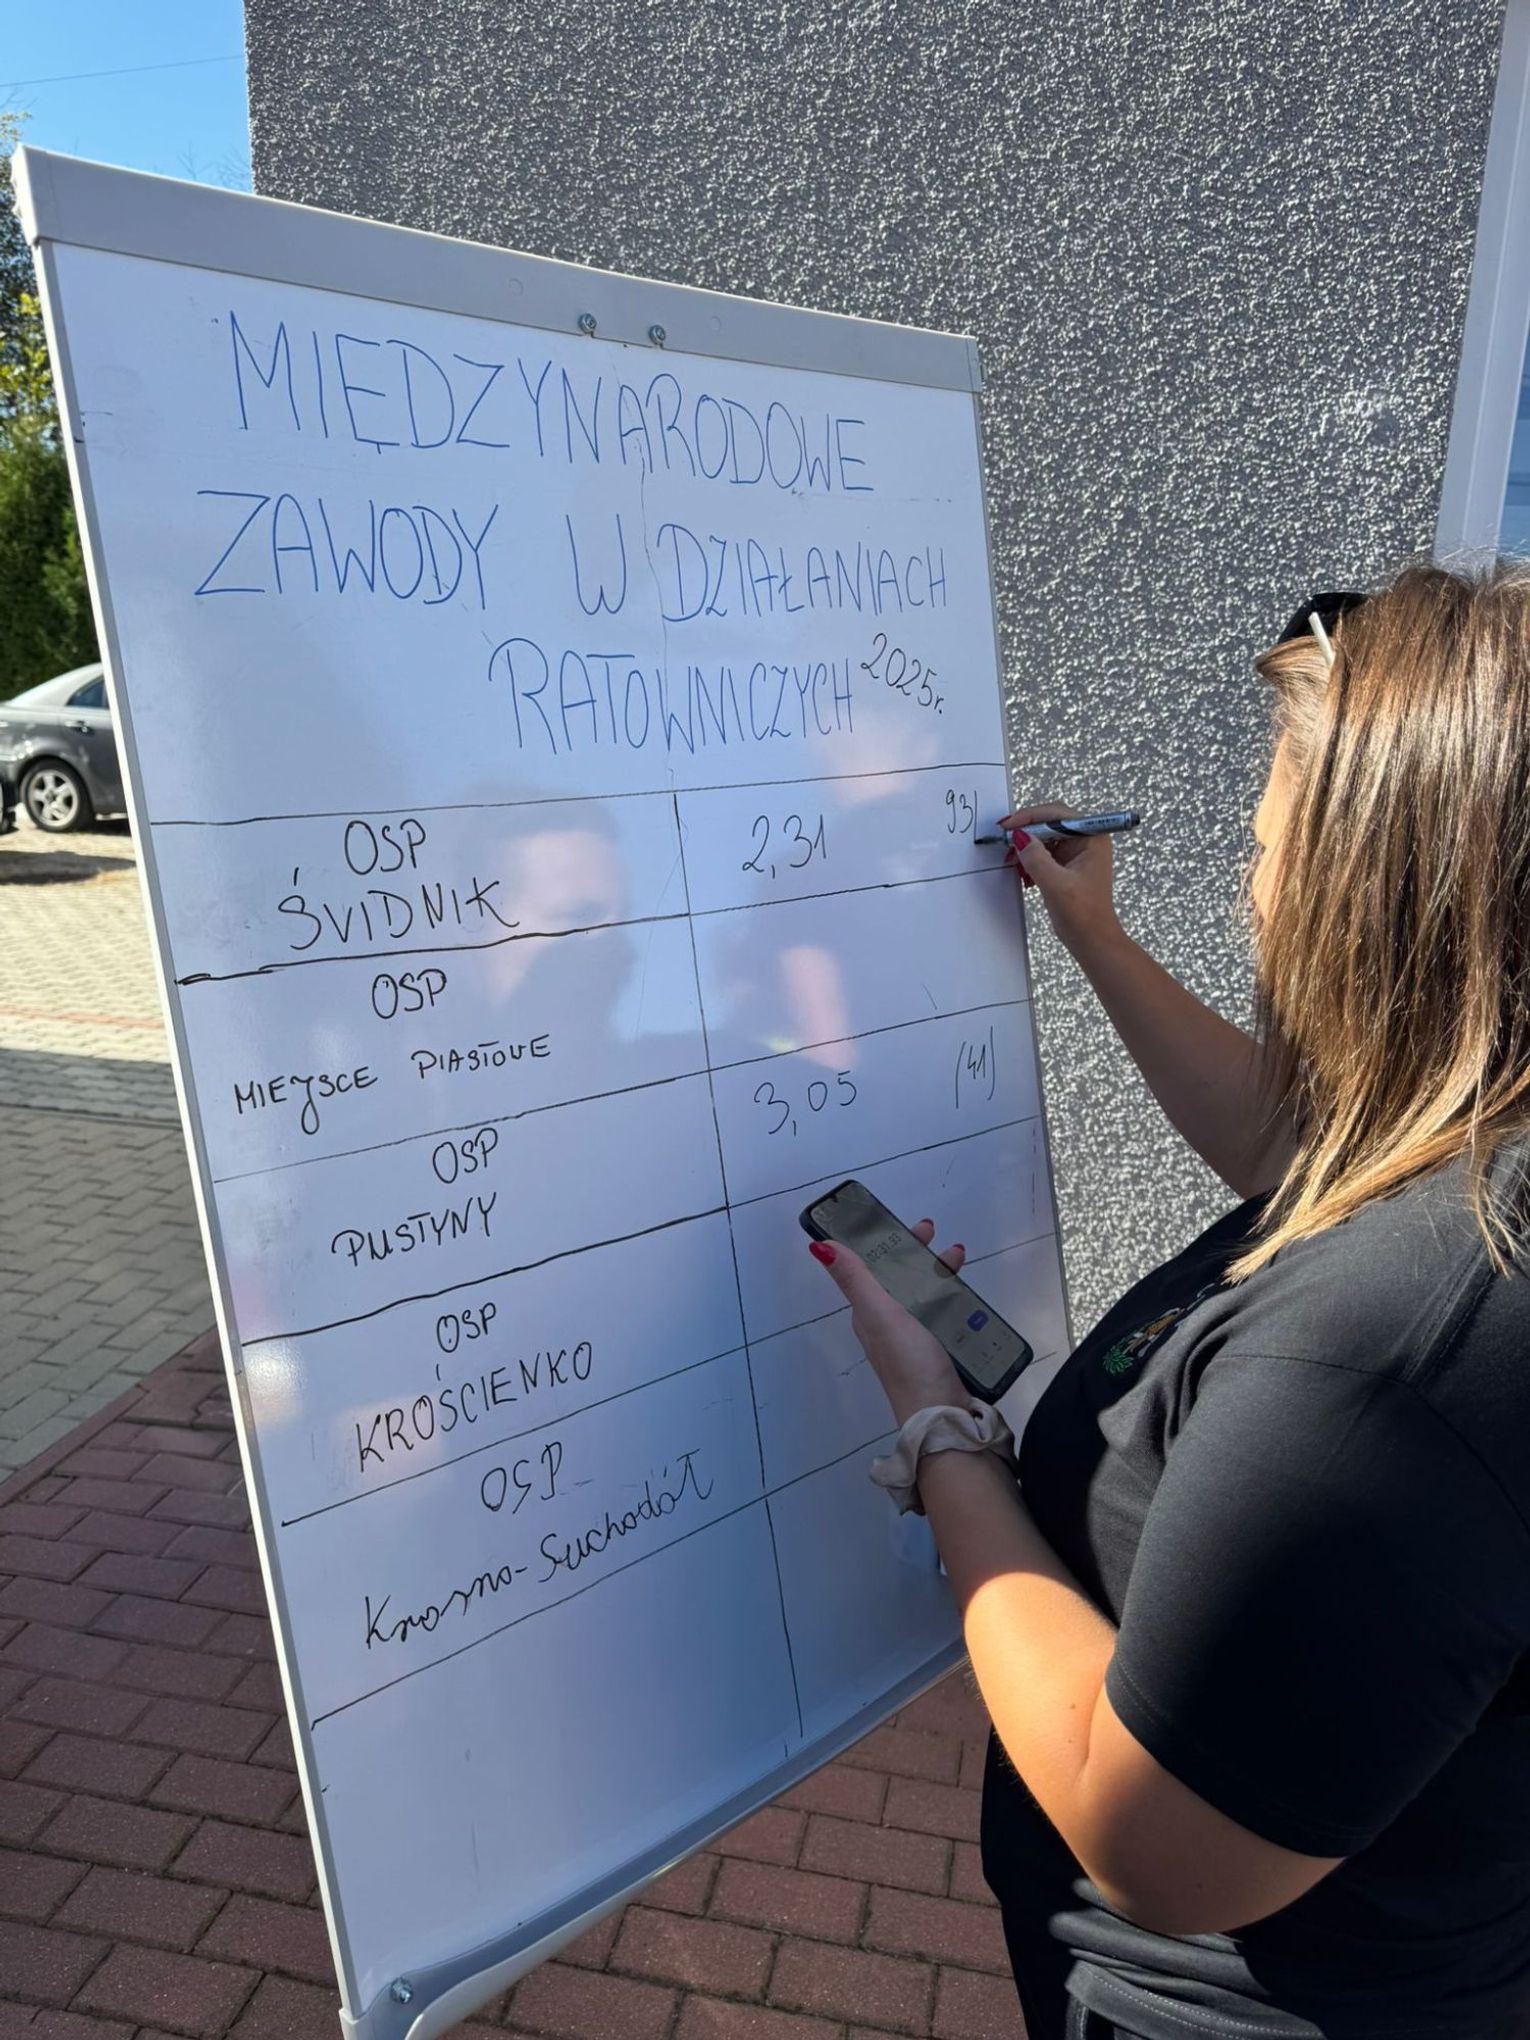 MIĘDZYNARODOWE
ZAWODY W DZIAŁANIACH
RATOWNICZYCH 2025r.
OSP
ŚVIDNIK
2,31 93
OSP
MIEJSCE PIASTOVE
OSP
PUSTYNY
3,05 (41)
OSP
KROŚCIENKO
OSP
Krosno-Suchodół
02:31.93